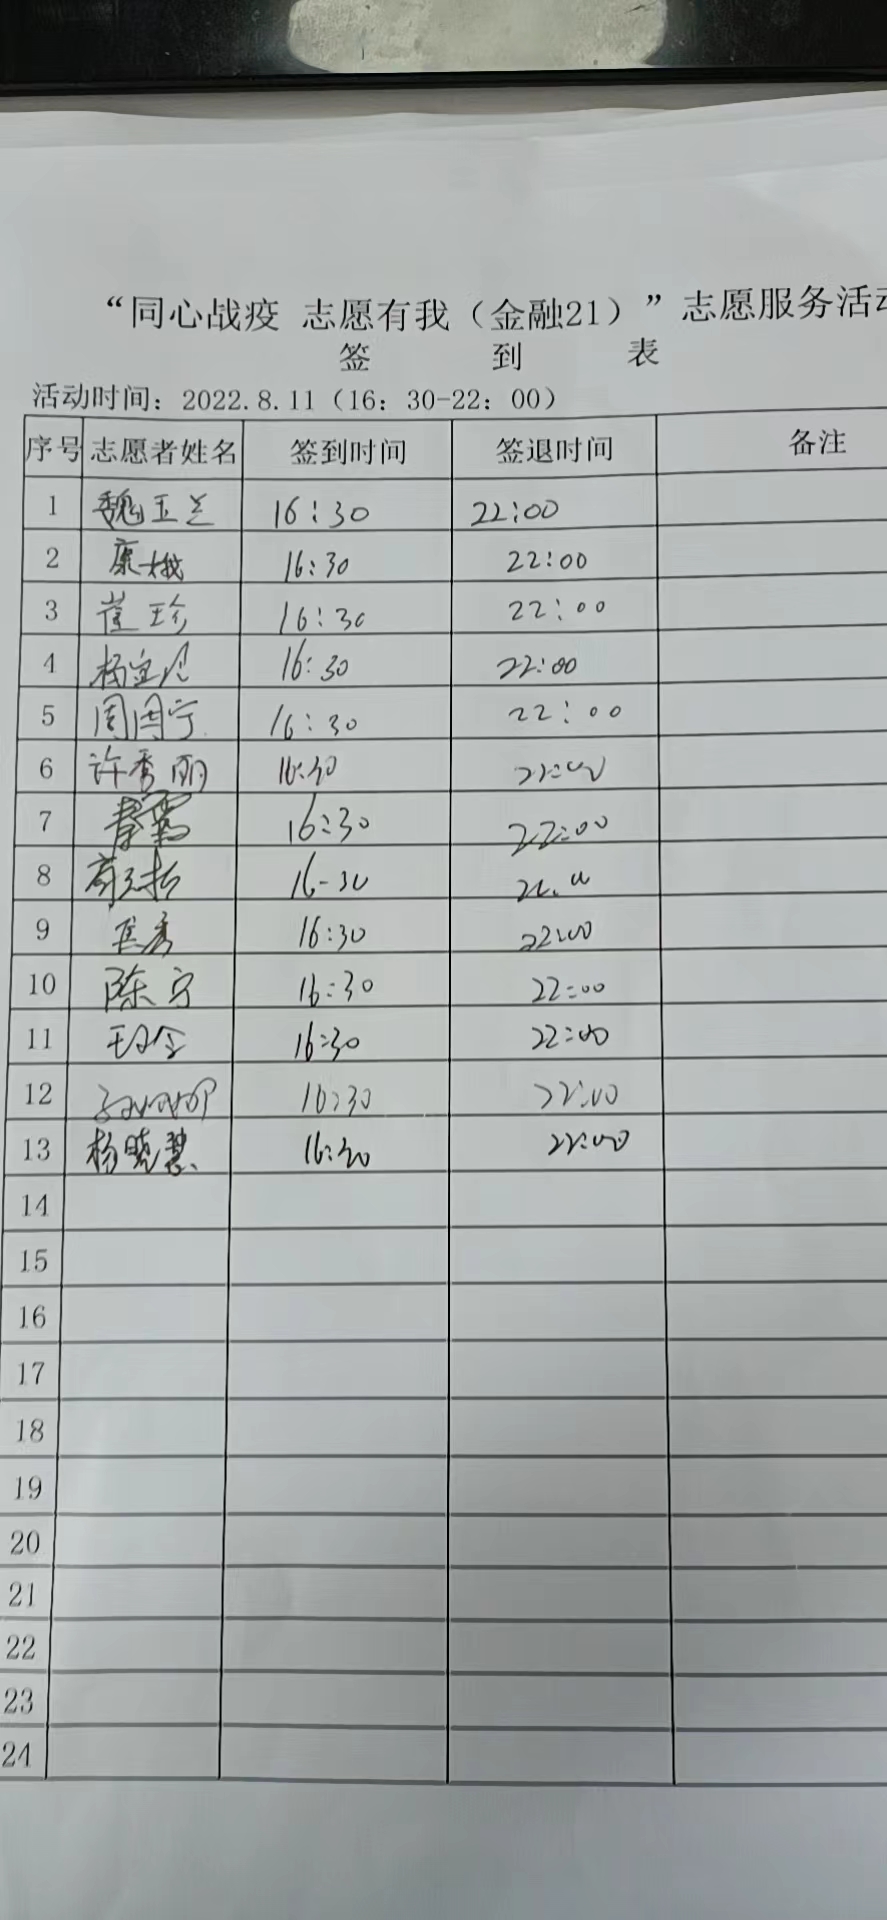 “同心战疫 志愿有我（金融21）”志愿服务活动
签 到 表
活动时间：2022.8.11（16：30-22：00）
序号 志愿者姓名 签到时间 签退时间 备注
1 魏玉兰 16:30 22:00
2 康娥 16:30 22:00
3 崔珍 16:30 22:00
4 杨 16:30 22:00
5 周国宁 16:30 22:00
6 许秀丽 16:30 22:00
7 16:30 22:00
8 16-30 22:00
9 16:30 22:00
10 陈宁 16:30 22:00
11 16:30 22:00
12 16:30 22:00
13 杨晓慧 16:30 22:00
14
15
16
17
18
19
20
21
22
23
24